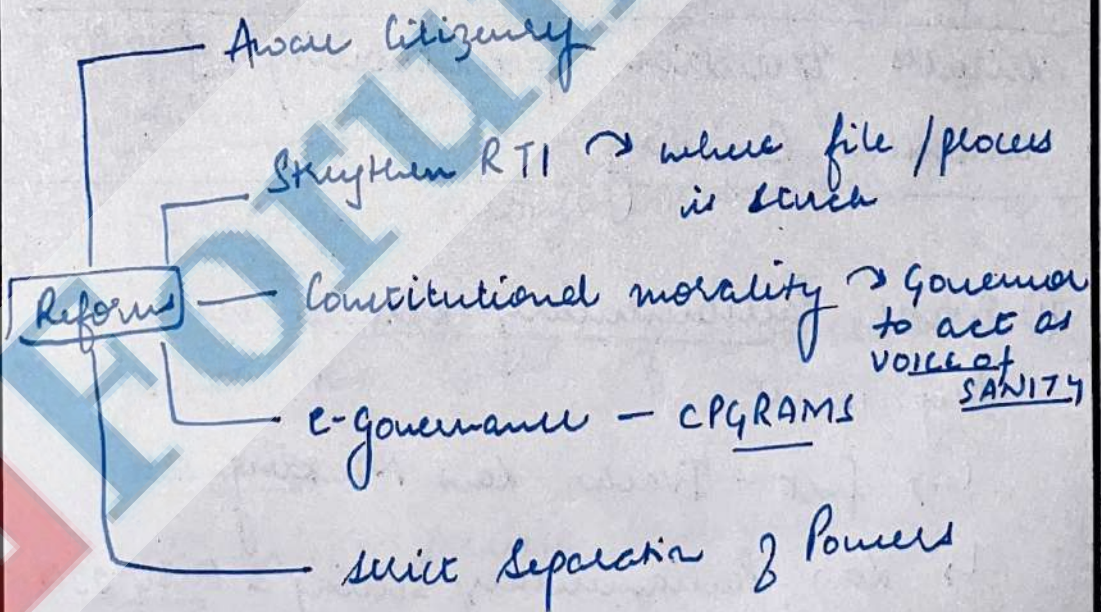 Aware Citizenry
Strengthen RTI → where file / process
is stuck
Reforms
Constitutional morality → Governor
to act as
VOICE of
SANITY
e-governance – CPGRAMS
strict Separation of Powers
Forum